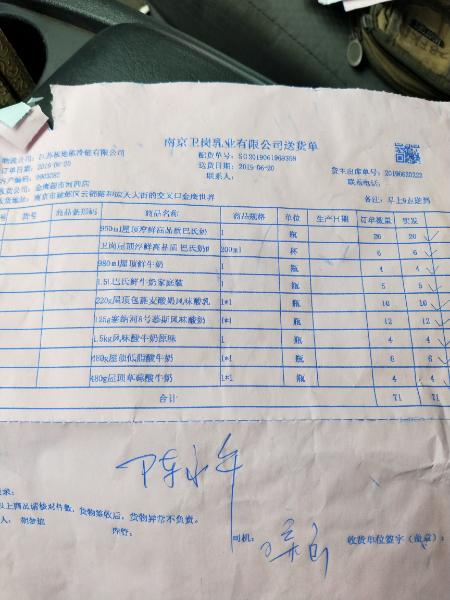 南京卫岗乳业有限公司送货单
物流公司：江苏极地熊冷链有限公司 配货单号：SO2019061968358
订单日期：2019-06-20 送货日期：2019-06-20 货主出库单号：20190620322
客户编号： 联系人： 联系电话：
收货公司：金鹰超市河西店
收货地址：南京市建邺区云锦路和应天大街的交叉口金鹰世界 备注：早上9点送到
货号 商品条形码 商品名称 商品规格 单位 生产日期 订单数量 实发
950ml屋顶淳鲜高品款巴氏奶 1 瓶 20 20
卫岗屋顶淳鲜高品 巴氏奶 200ml 杯 6 6
980ml屋顶鲜牛奶 1 瓶 4 4
1.5L巴氏鲜牛奶家庭装 1 瓶 5 5
220g屋顶包燕麦酸奶风味酸乳 1*1 瓶 10 10
125g塞纳河6号慕斯风味酸奶 1*1 瓶 12 12
1.5kg风味酸牛奶原味 1 瓶 4 4
480g屋顶低脂酸牛奶 1*1 瓶 6 6
480g屋顶草莓酸牛奶 1*1 瓶 4 4
合计 71 71
以上商品请核对件数，货物签收后，货物异常不负责。
司机： 收货单位签字（盖章）：